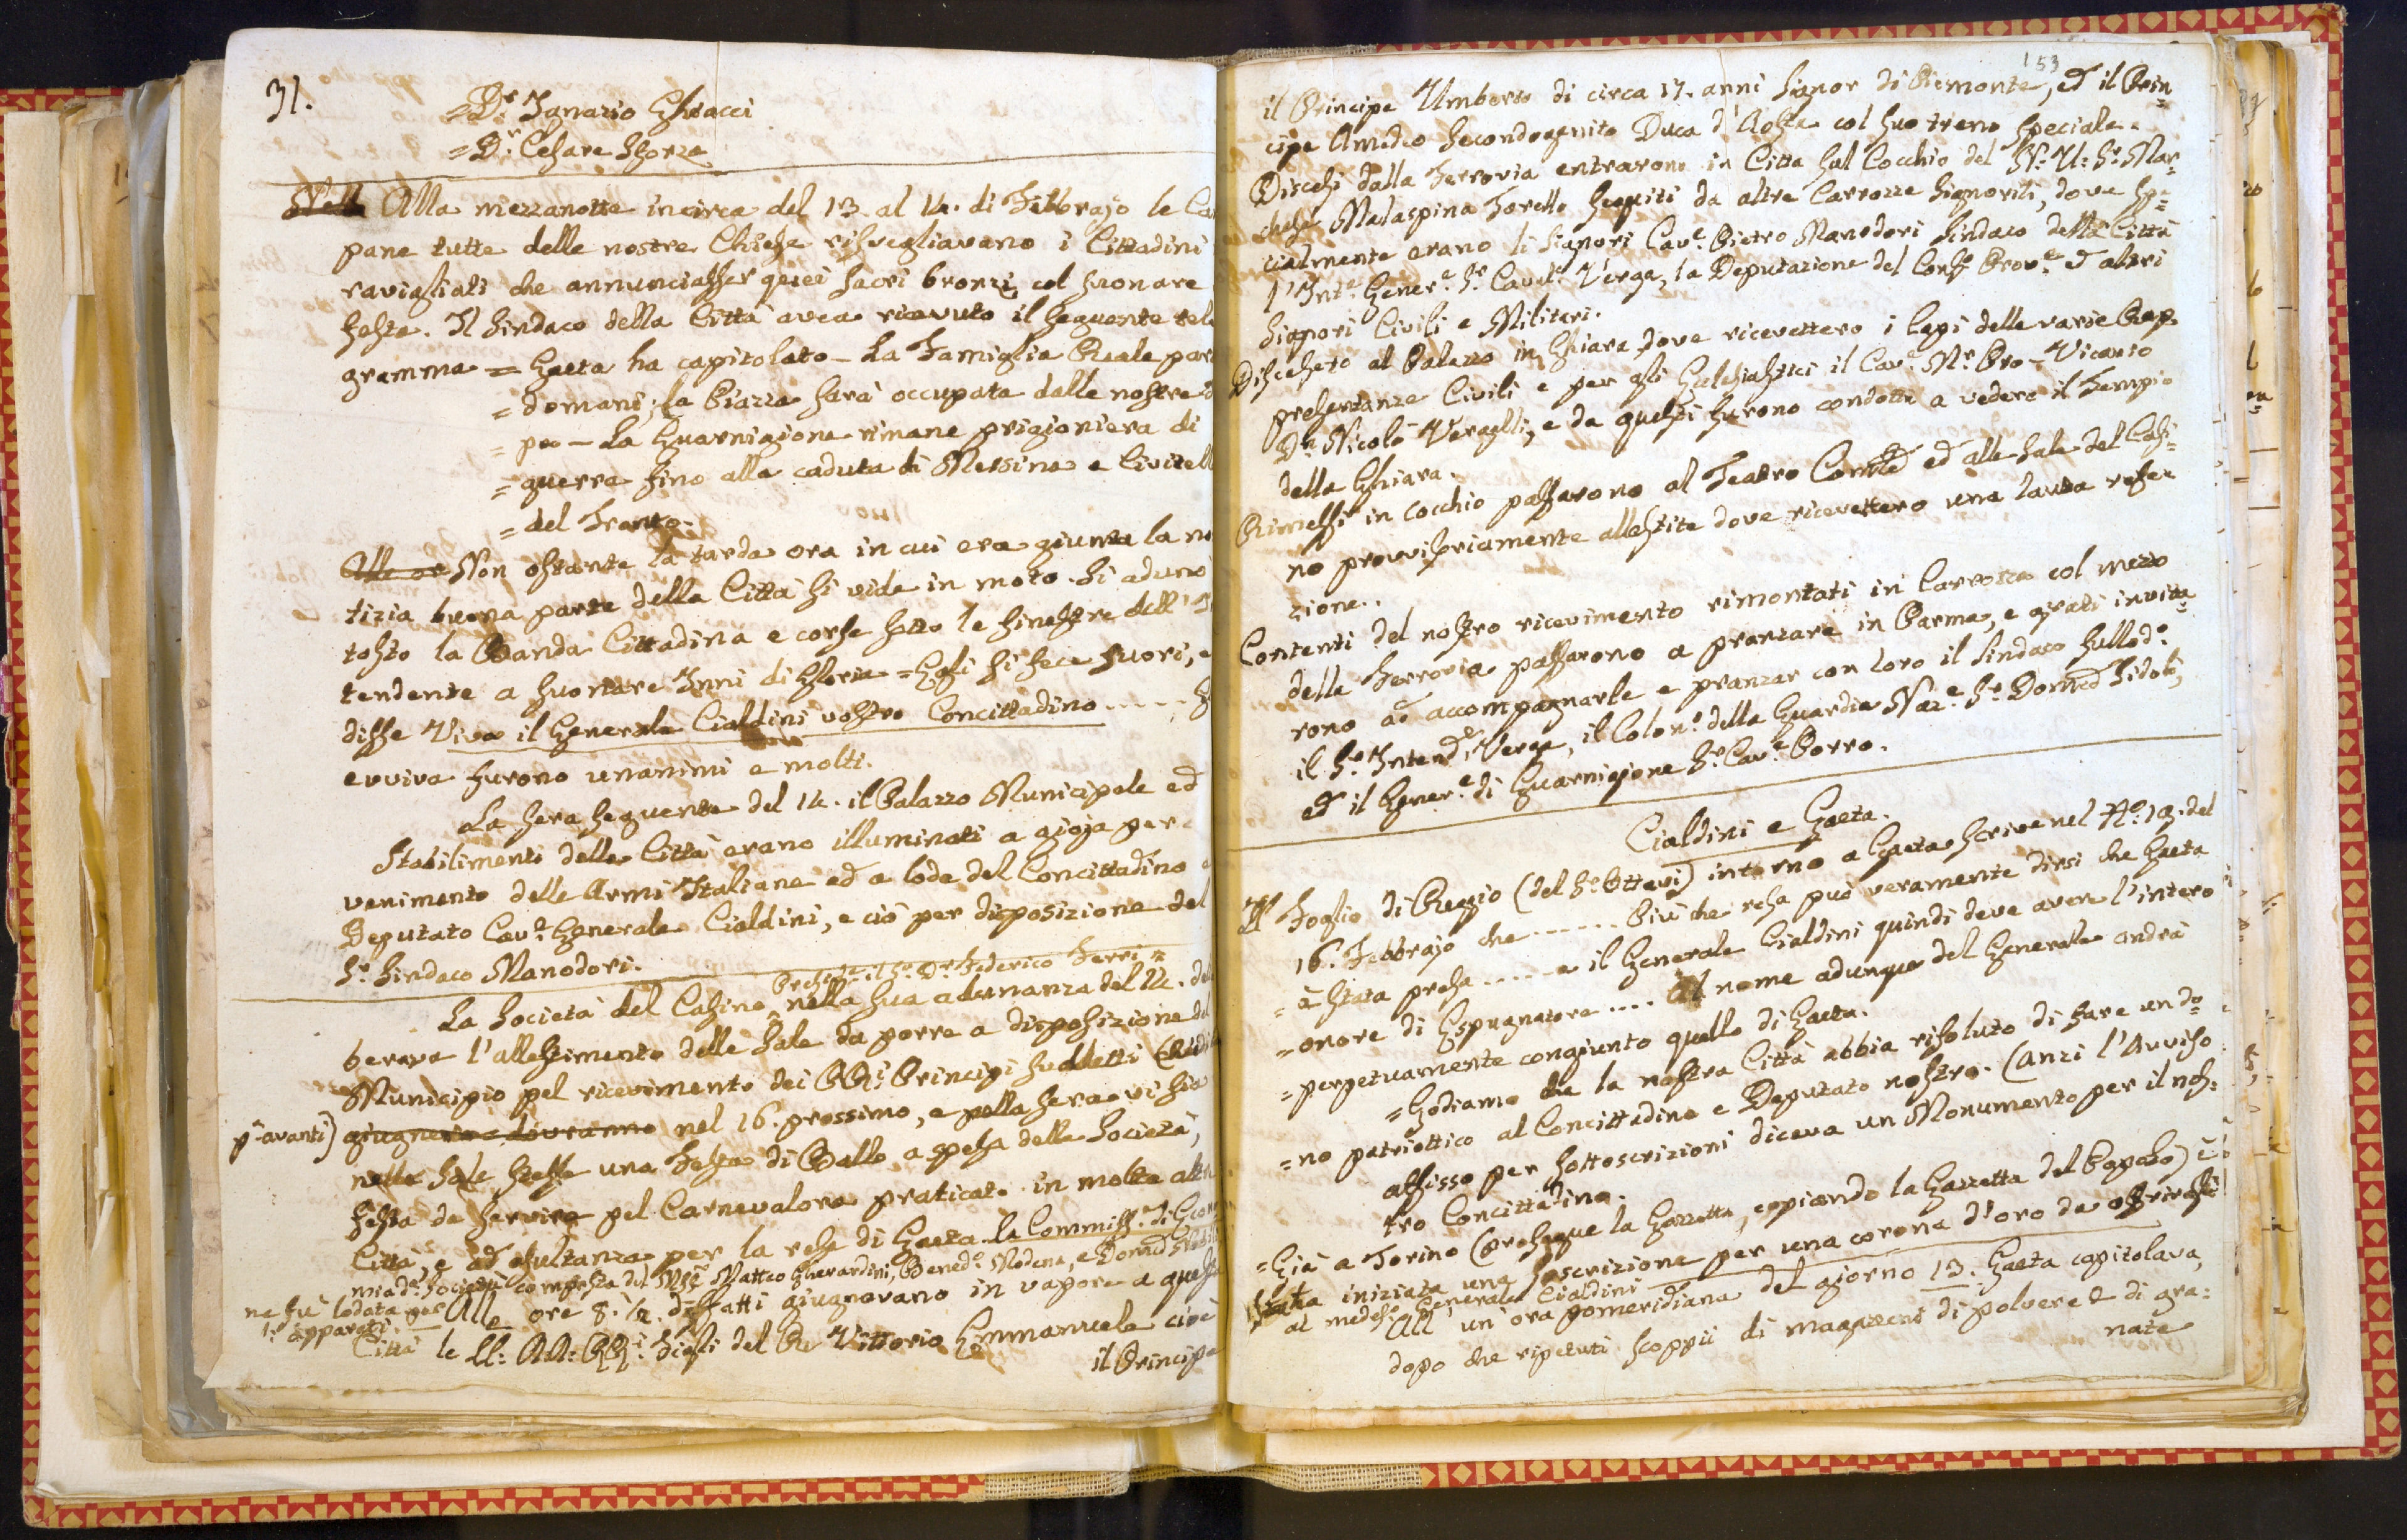 31.
= Dr. Ignazio Ghiacci
= Dr. Cesare Sforza
Nella Alla mezzanotte incirca del 13. al 14. di Febbrajo le Cam
pane tutte delle nostre Chiese risvegliavano i Cittadini
ravigliati che annunciasser que' sacri bronzi col suonare
festa. Il Sindaco della Città avea ricevuto il seguente tele
gramma = Gaeta ha capitolato - La Famiglia Reale par
= domani; la Piazza sarà occupata dalle nostre
= pe - La Guarnigione rimane prigioniera di
= guerra fino alla caduta di Messina e Civitell
= del Tronto.
Alle or Non ostante la tarda ora in cui era giunta la no
tizia buona parte della Città si vide in moto. Si adunò
tosto la Banda Cittadina e corse sotto le finestre dell'In
tendente a suonare Inni di Gloria = Egli si fece fuori, e
disse Viva il Generale Cialdini vostro Concittadino .....
evviva furono unanimi e molti.
La sera seguente del 14. il Palazzo Municipale ed
Stabilimenti della Città erano illuminati a gioja per
venimento delle Armi Italiane ed a lode del Concittadino
Deputato Cave. Generale Cialdini, e ciò per disposizione del
Sr. Sindaco Manodori.
Preside. il Sr. Dr. Federico Ferri
La Società del Casino nella sua adunanza del 14. de
berava l'allestimento delle Sale da porre a disposizione del
Municipio pel ricevimento dei RRi. Principi suddetti (Vedi
pa. avanti) giugnere dovranno nel 16. prossimo, e nella sera vi sia
nelle Sale stesse una Festa di Ballo a spesa della Società,
festa da servire pel Carnevalone praticato in molte altre
Città, e ad esultanza per la resa di Gaeta. La Commisse. di
mia da. Società composta dei Matteo Gherardini, Benedo. Modena, e Domco.
ne fu lodata per
gli apparati.
Alle ore 8. 1/2. diffatti giugnevano in vapore a questa
Città le LL: AA: RRi. Figli del Re Vittorio Emmanuele cioè
il Principe
153
il Principe Umberto di circa 17. anni Signor di Piemonte, ed il Prin=
cipe Amedeo Secondogenito Duca d'Aosta col suo treno speciale.
Discesi dalla Ferrovia entrarono in Città sul Cocchio del N: U: Sr. Mar=
chese Malaspina Torello seguiti da altre Carrozze Signorili, dove spe=
cialmente erano li Signori Cave. Pietro Manodori Sindaco della Città
l'Inte. Genere. Sr. Cavale. Verga, la Deputazione del Conso. Prove. ed altri
Signori Civili e Militari.
Discesero al Palazzo in Ghiara, dove ricevettero i Capi delle varie Rap=
presentanze Civili e per gli Ecclesiastici il Cave. Mr. Pro-Vicario
Dn. Nicolò Vercalli, e da questi furono condotti a vedere il Tempio
della Ghiara.
Rimessi in Cocchio passarono al Teatro Comle. ed alle Sale del Casi=
no provvisoriamente allestite dove ricevettero una lauta refe
zione.
Contenti del nostro ricevimento rimontati in Carrozza col mezzo
della Ferrovia passarono a pranzare in Parma, e grati invita=
rono ad accompagnarle e pranzar con loro il Sindaco sullodo.
il Sr. Intende. Verga, il Colono. della Guardia Naze. Sr. Domco. Sidoli,
ed il Genere. di Guarnigione Sr. Cave. Porro.
Cialdini e Gaeta.
Il Foglio di Reggio (del Sr. Ottavi) intorno a Gaeta scrive nel No. 19. del
16. Febbrajo che ...... Più che resa può veramente dirsi che Gaeta
= è stata presa ..... e il Generale Cialdini quindi deve avere l'intero
= onore di Espugnatore .... Al nome adunque del Generale andrà
= perpetuamente congiunto quello di Gaeta.
= Godiamo che la nostra Città abbia risoluto di fare un do=
= no patriottico al Concittadino e Deputato nostro. (anzi l'Avviso
affisso per sottoscrizioni diceva un Monumento per il nos=
tro Concittadino.
= Già a Torino (prosegue la Gazzetta, copiando la Gazzetta del Popolo) è
stata iniziata una soscrizione per una corona d'oro da offrirsi
al medeso. Generale Cialdini
All'un'ora pomeridiana del giorno 13. Gaeta capitolava,
dopo che ripetuti scoppii di magazzeni di polvere e di gra=
nate